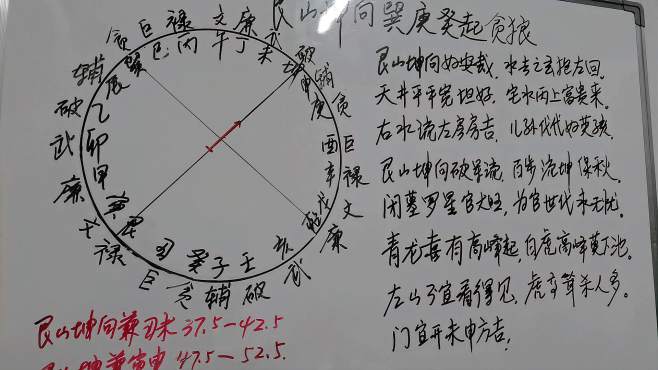 艮山坤向巽庚癸起贪狼
贪巨禄文廉武破辅贪巨禄文廉武破辅贪巨禄文廉武破辅
辰巽巳丙午丁未坤申庚酉辛戌乾亥壬子癸丑艮寅甲卯乙
艮山坤向如安哉，水去之玄抱左回。
天井平平宽坦好，宅水丙上富贵来。
右水流左房房吉，儿孙代代如英孩
艮山坤向破军流，百步流坤保秋。
闭墓罗星官大旺，为官世代永无忧。
青龙喜有高峰起，白虎高峰莫下池。
左山了宜看得见，虎 煞人多。
门宜开未申方吉，
艮山坤向兼丑未37.5—42.5
艮山坤兼寅申47.5—52.5.